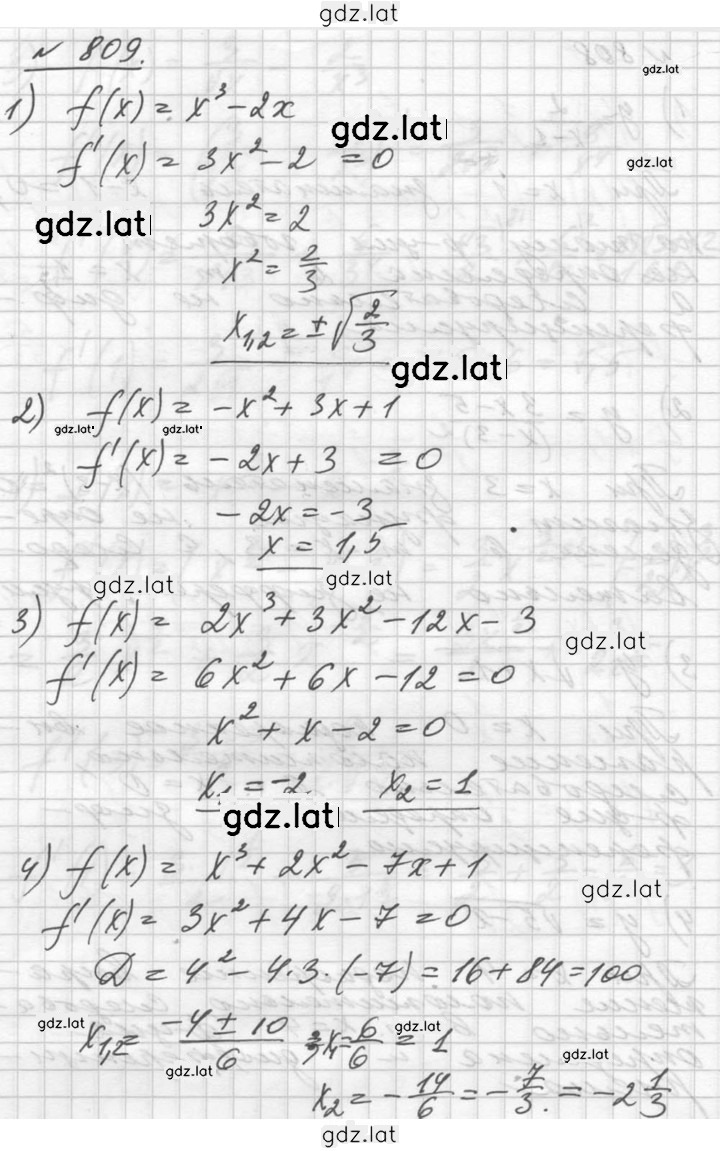 gdz.lat
№ 809.
gdz.lat
1) f(x) = x³ - 2x
gdz.lat
f'(x) = 3x² - 2 = 0
gdz.lat
gdz.lat
3x² = 2
x² = 2/3
x₁,₂ = ± √(2/3)
gdz.lat
2) f(x) = -x² + 3x + 1
gdz.lat gdz.lat
f'(x) = -2x + 3 = 0
-2x = -3
x = 1,5
gdz.lat gdz.lat
3) f(x) = 2x³ + 3x² - 12x - 3
gdz.lat
f'(x) = 6x² + 6x - 12 = 0
x² + x - 2 = 0
x₁ = -2 x₂ = 1
gdz.lat
4) f(x) = x³ + 2x² - 7x + 1
gdz.lat
f'(x) = 3x² + 4x - 7 = 0
D = 4² - 4·3·(-7) = 16 + 84 = 100
gdz.lat gdz.lat
x₁,₂ = (-4 ± 10)/6 x₁ = 6/6 = 1
gdz.lat gdz.lat
x₂ = -14/6 = -7/3 = -2 1/3
gdz.lat